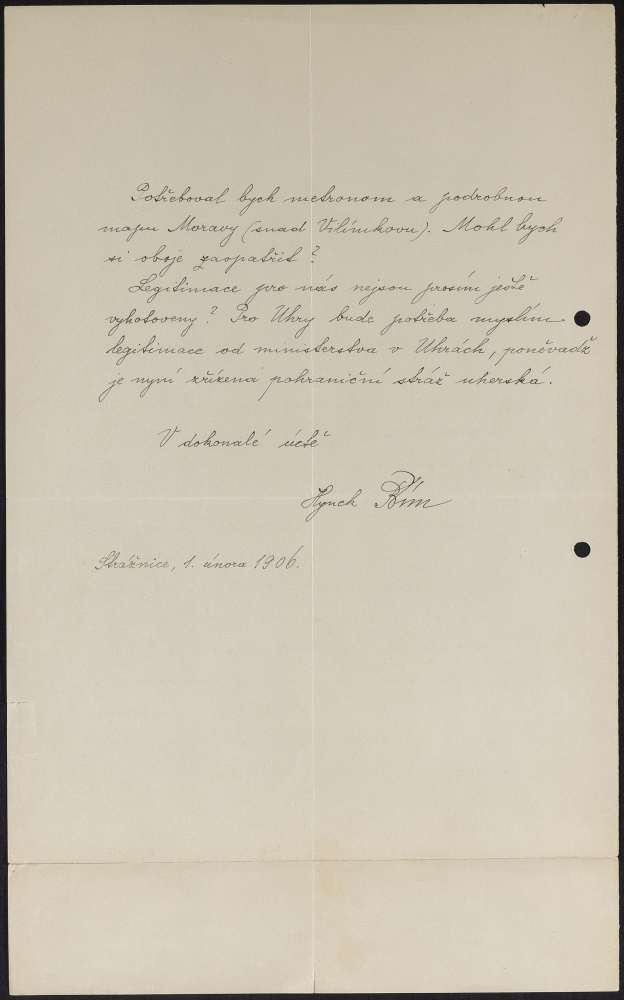 Potřeboval bych metronom a podrobnou
mapu Moravy (snad Vilímkovu). Mohl bych
si oboje zaopatřit?
Legitimace pro nás nejsou prosím ještě
vyhotoveny? Pro Uhry bude potřeba myslím
legitimace od ministerstva v Uhrách, poněvadž
je nyní zřízena pohraniční stráž uherská.
V dokonalé úctě
Hynek Bím
Strážnice, 1. února 1906.